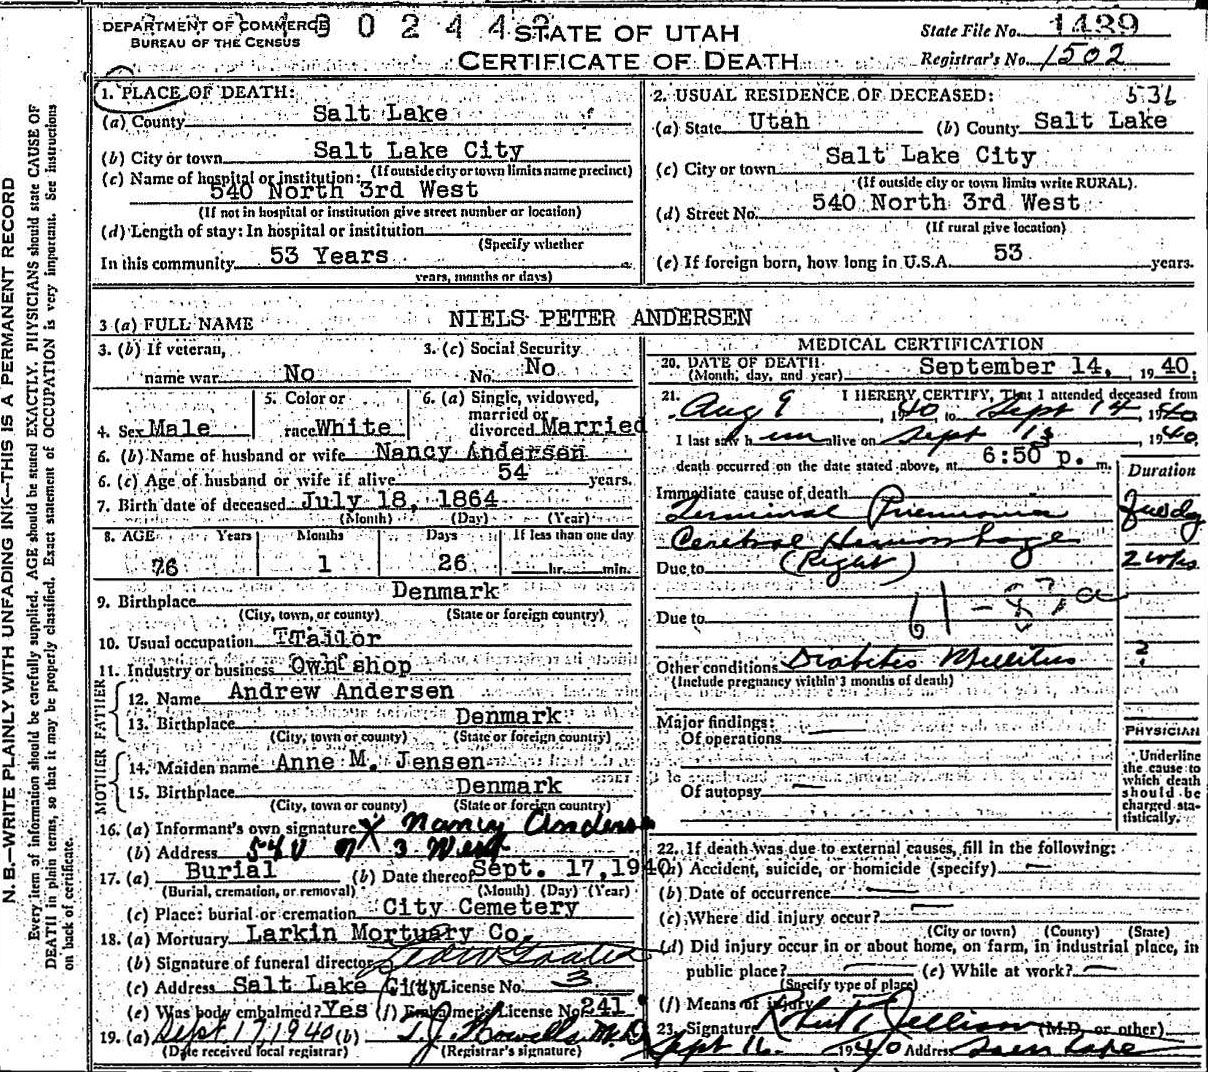 DEPARTMENT OF COMMERCE
BUREAU OF THE CENSUS
3 0 2 4 4 2
STATE OF UTAH
CERTIFICATE OF DEATH
State File No. 1439
Registrar's No. 1502
N. B.—WRITE PLAINLY WITH UNFADING INK—THIS IS A PERMANENT RECORD
Every item of information should be carefully supplied. AGE should be stated EXACTLY. PHYSICIANS should state CAUSE OF
DEATH in plain terms, so that it may be properly classified. Exact statement of OCCUPATION is very important. See instructions
on back of certificate.
1. PLACE OF DEATH:
(a) County Salt Lake
(b) City or town Salt Lake City
(If outside city or town limits name precinct)
(c) Name of hospital or institution:
540 North 3rd West
(If not in hospital or institution give street number or location)
(d) Length of stay: In hospital or institution
(Specify whether
In this community 53 Years
years, months or days)
2. USUAL RESIDENCE OF DECEASED: 536
(a) State Utah (b) County Salt Lake
(c) City or town Salt Lake City
(If outside city or town limits write RURAL).
(d) Street No. 540 North 3rd West
(If rural give location)
(e) If foreign born, how long in U.S.A. 53 years.
3 (a) FULL NAME NIELS PETER ANDERSEN
3. (b) If veteran,
name war No
3. (c) Social Security
No. No
4. Sex Male
5. Color or
race White
6. (a) Single, widowed,
married or
divorced Married
6. (b) Name of husband or wife Nancy Andersen
6. (c) Age of husband or wife if alive 54 years.
7. Birth date of deceased July 18, 1864
(Month) (Day) (Year)
8. AGE Years Months Days If less than one day
76 1 26 hr. min.
9. Birthplace Denmark
(City, town, or county) (State or foreign country)
10. Usual occupation TTailor
11. Industry or business Own shop
FATHER
12. Name Andrew Andersen
13. Birthplace Denmark
(City, town or county) (State or foreign country)
MOTHER
14. Maiden name Anne M. Jensen
15. Birthplace Denmark
(City, town or county) (State or foreign country)
16. (a) Informant's own signature X Nancy Anderse
(b) Address 540 N 3 West
17. (a) Burial (b) Date thereof Sept. 17, 1940
(Burial, cremation, or removal) (Month) (Day) (Year)
(c) Place: burial or cremation City Cemetery
18. (a) Mortuary Larkin Mortuary Co.
(b) Signature of funeral director
(c) Address Salt Lake City (d) License No. 3
(e) Was body embalmed? Yes (f) Embalmer's License No. 241
19. (a) Sept 17, 1940 (b) T. J. Howells M.D.
(Date received local registrar) (Registrar's signature)
MEDICAL CERTIFICATION
20. DATE OF DEATH
(Month, day, and year) September 14, 1940;
21. I HEREBY CERTIFY, That I attended deceased from
Aug 9, 1940 to Sept 14 1940
I last saw him alive on Sept 13, 1940,
death occurred on the date stated above, at 6:50 p. m.
Duration
Immediate cause of death
Terminal Pneumonia
Cerebral Hemorrhage
Due to (Right) 2 wks
Due to 61 -
Other conditions Diabetes Mellitus ?
(Include pregnancy within 3 months of death)
Major findings:
Of operations
Of autopsy
PHYSICIAN
Underline
the cause to
which death
should be
charged sta-
tistically.
22. If death was due to external causes, fill in the following:
(a) Accident, suicide, or homicide (specify)
(b) Date of occurrence
(c) Where did injury occur?
(City or town) (County) (State)
(d) Did injury occur in or about home, on farm, in industrial place, in
public place? (e) While at work?
(Specify type of place)
(f) Means of injury
23. Signature Robert Jellison (M.D. or other)
Sept 16. 1940 Address